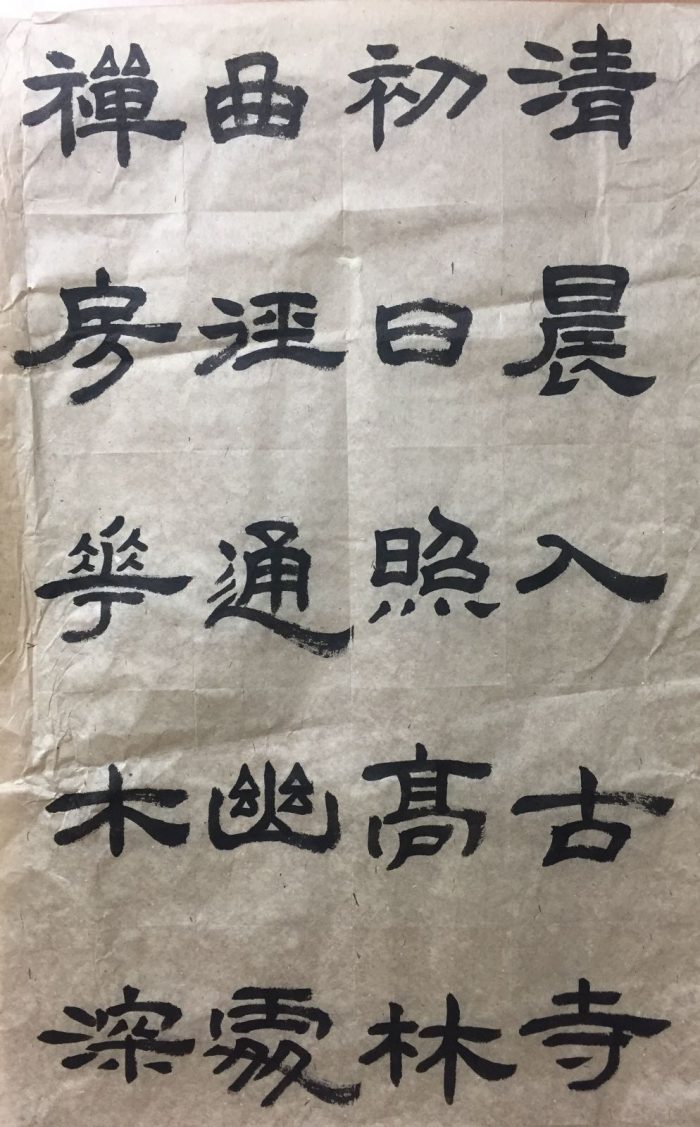 清晨入古寺
初日照高林
曲徑通幽處
禪房花木深